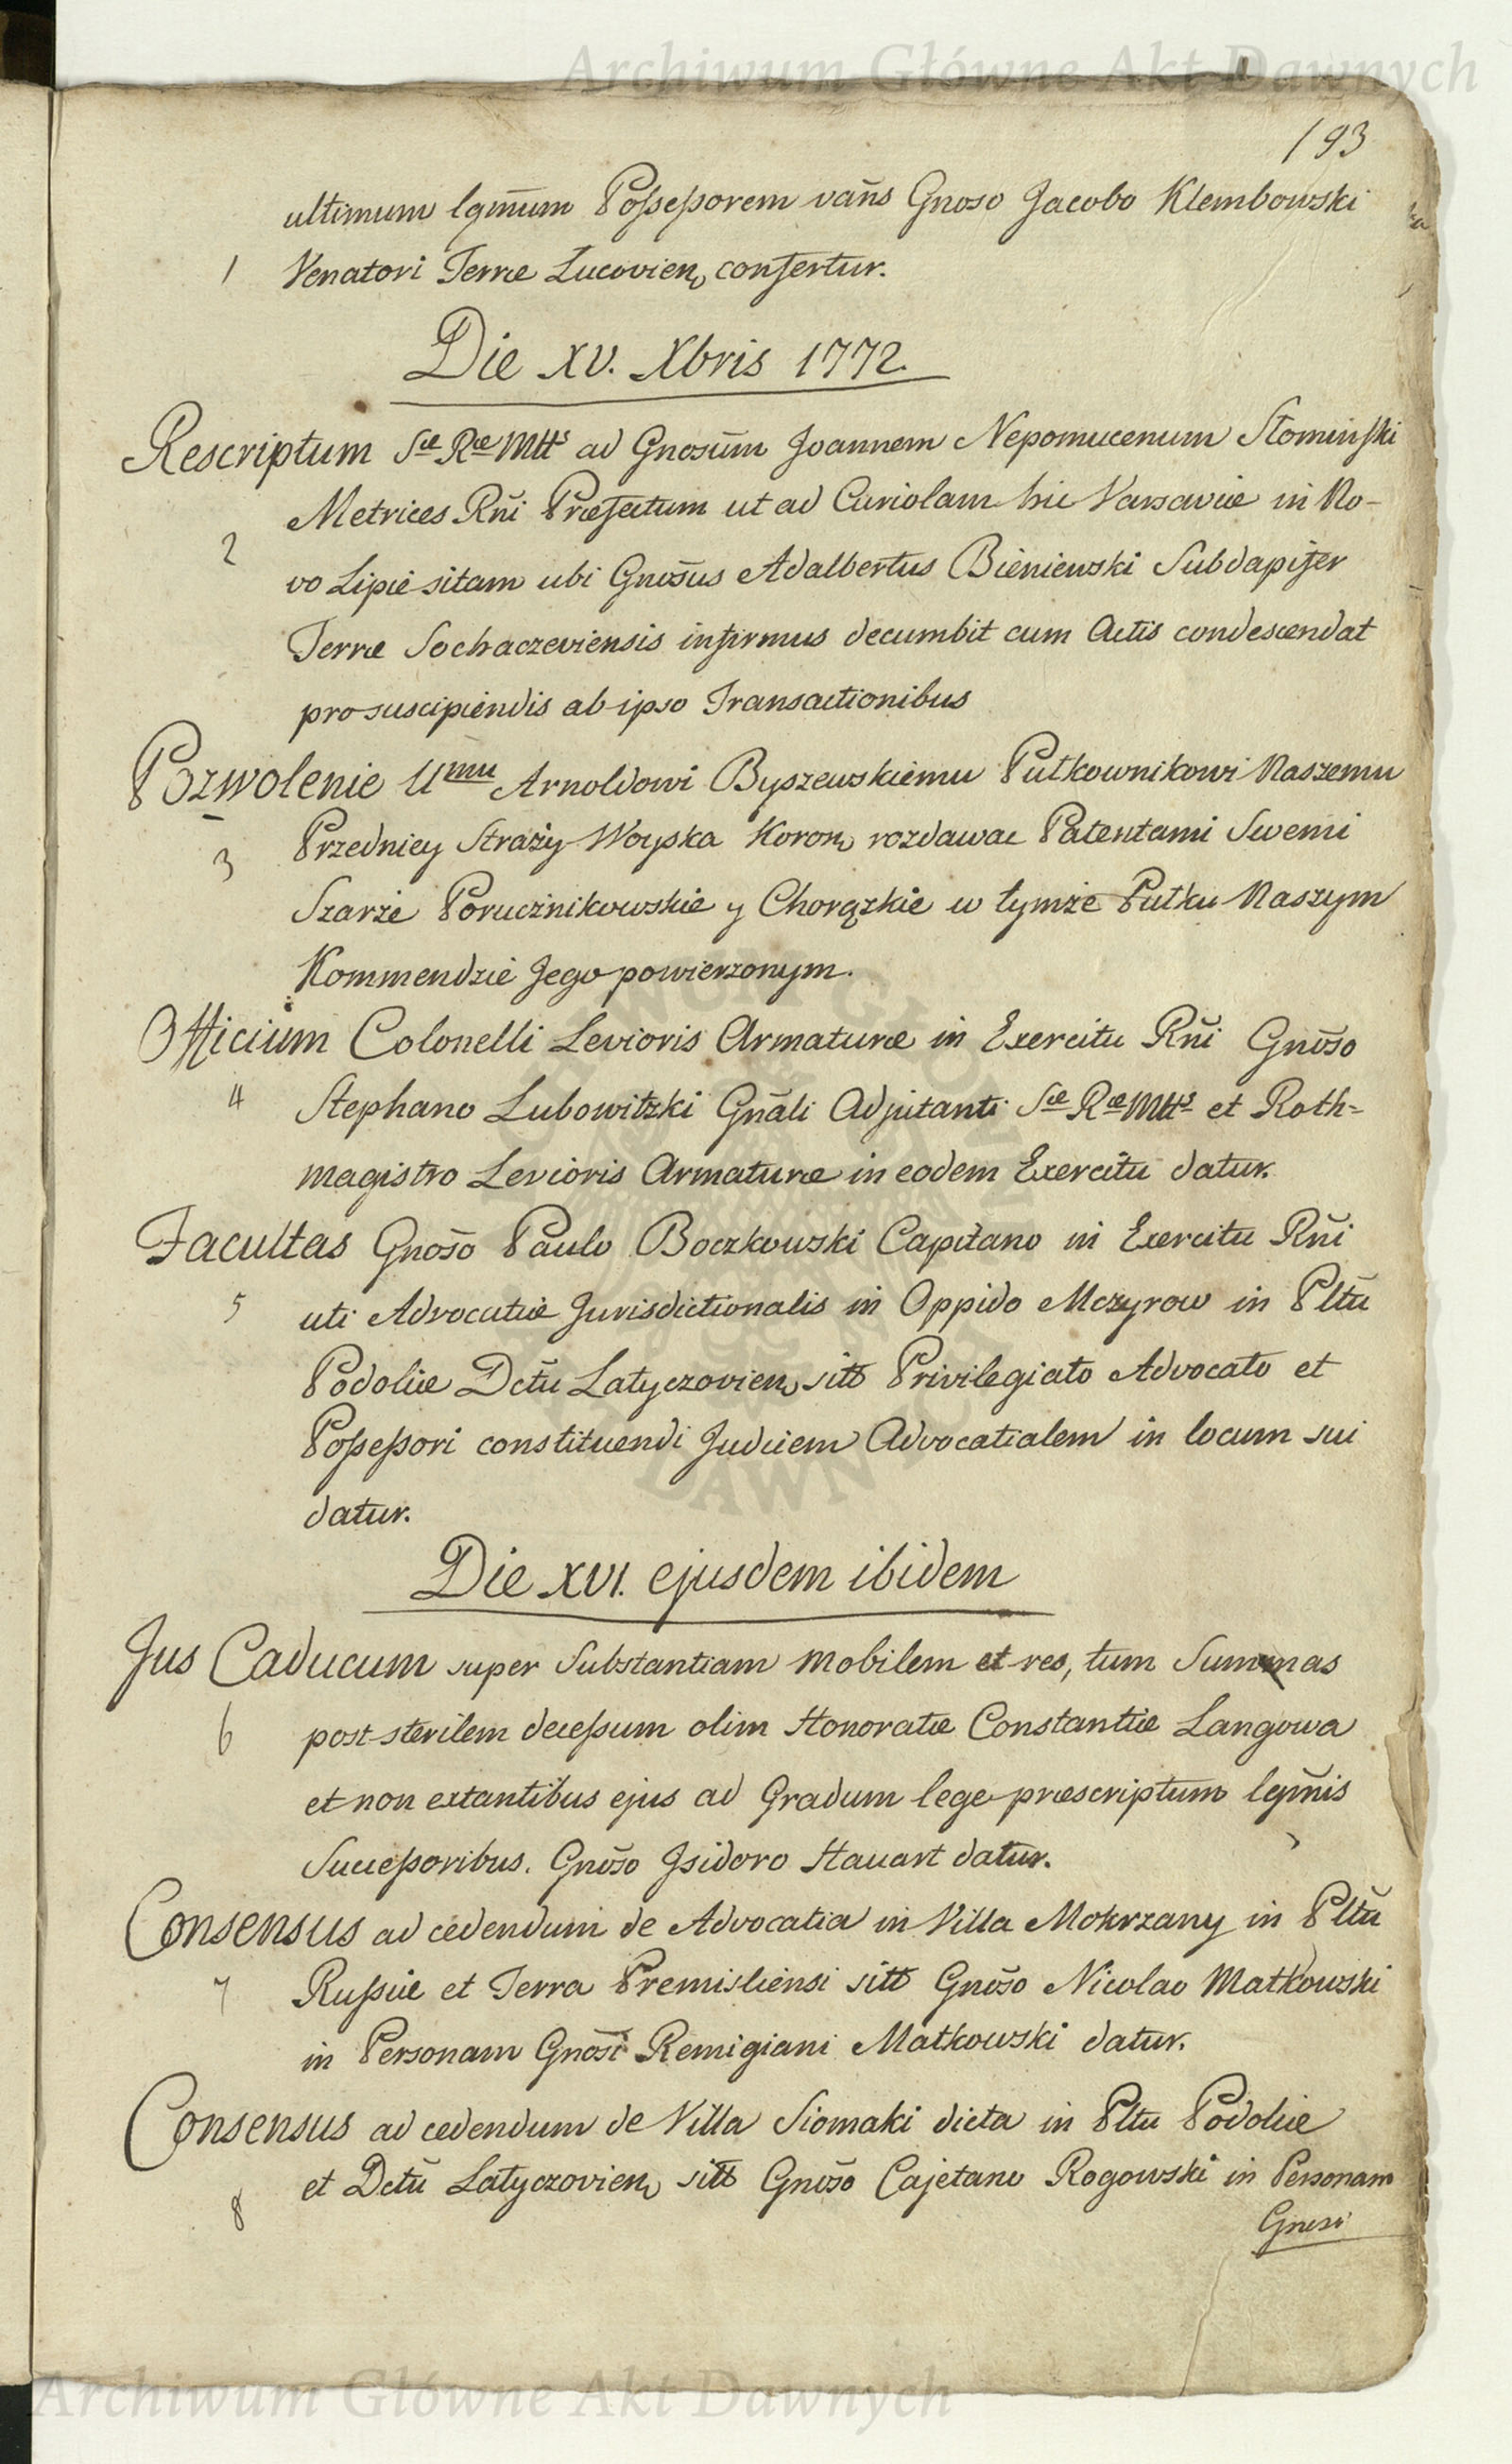 Archiwum Główne Akt Dawnych
193
ultimum lgm̄um Poſseſsorem vāns Gnoso Jacobo Klembowski
1 Venatori Terræ Lucovien, confertur.
Die XV. Xbris 1772.
Rescriptum Sæ Ræ Mttˢ ad Gnosum̄ Joannem Nepomucenum Słomiński
Metrices Rn̄i Præfectum ut ad Curiolam hic Varsaviæ in No-
2 vo Lipie sitam ubi Gnos̄us Adalbertus Bieniewski Subdapifer
Terræ Sochaczeviensis infirmus decumbit cum Actis condescendat
pro suscipiendis ab ipso Transactionibus
Pozwolenie Uᵐᵘ Arnoldowi Byszewskiemu Pułkownikowi Naszemu
3 Przedniey Straży Woyska Koron, rozdawac Patentami Swemi
Szarże Porucznikowskie y Chorązkie w tymże Pułku Naszym
Kommendzie Jego powierzonym.
Officium Colonelli Levioris Armaturæ in Exercitu Rn̄i Gnos̄o
4 Stephano Lubowitzki Gn̄ali Adjutanti Sæ Ræ Mttˢ et Roth=
magistro Levioris Armaturæ in eodem Exercitu datur.
Facultas Gnos̄o Paulo Boczkowski Capitano in Exercitu Rn̄i
5 uti Advocatiæ Jurisdictionalis in Oppido Mczyrow in Pltū
Podoliæ Dctū Latyczovien, sitt Privilegiato Advocato et
Poſseſsori constituendi Judicem Advocatialem in locum sui
datur.
Die XVI. ejusdem ibidem
Jus Caducum super Substantiam mobilem et res, tum Summas
6 post sterilem deceſsum olim Honoratæ Constantiæ Langowa
et non extantibus ejus ad Gradum lege præscriptum lgm̄is
Succeſsoribus. Gnos̄o Isidoro Hauart datur.
Consensus ad cedendum de Advocatia in Villa Mokrzany in Pltū
7 Ruſsiæ et Terra Premisliensi sitt Gnos̄o Nicolao Matkowski
in Personam Gnos̄i Remigiani Matkowski datur.
Consensus ad cedendum de Villa Siomaki dicta in Pltu Podoliæ
8 et Dctū Latyczovien, sitt Gnos̄o Cajetano Rogowski in Personam
Gnosi
Archiwum Główne Akt Dawnych